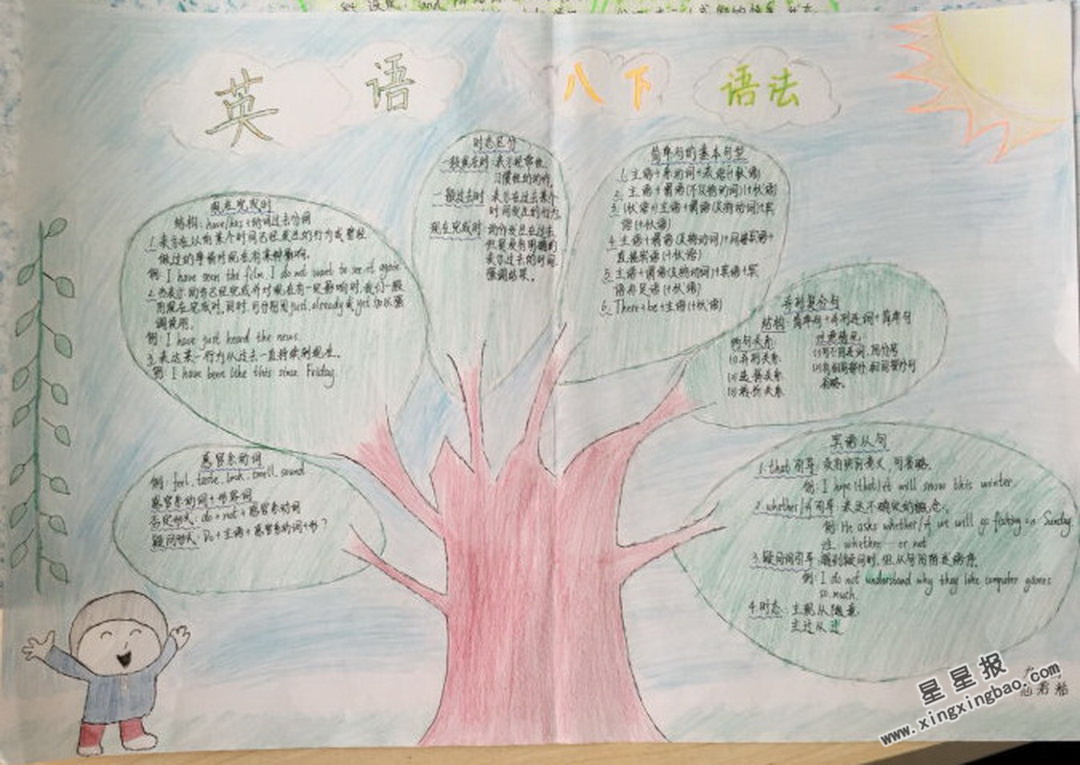 英语 八下 语法
现在完成时
结构: have/has + 动词过去分词
1.表示在以前某个时间已经发生的行为或曾经
做过的事情对现在有某种影响。
例: I have seen the film, I do not want to see it again
2.
用现在完成时,同时,可分别用just,already或yet加以强
调说明。
例: I have just heard the news.
3.表达某一行为从过去一直持续到现在。
例: I have been like this since Friday.
时态区分
一般现在时:表示经常性,
习惯性的动作,
一般过去时 表示在过去某个
时间发生的行为.
现在完成时 动作发生在过去
但是没有明确的
表示过去的时间,
强调结果。
简单句的基本句型
1.主语+系动词+表语(+状语)
2. 主语+谓语(不及物动词)(+状语)
3.(状语+)主语+谓语(及物动词)+宾
语(+状语)
4.主语+谓语(及物动词)+间接宾语+
直接宾语(+状语)
5.主语+谓语(及物动词)+宾语+宾
语补足语(+状语)
6. There+be+主语(+状语)
并列复合句
结构:简单句+并列连词+简单句
两句关系:
(1)并列关系
(2)选择关系
(3)转折关系
注意情况:
省略。
感官系动词
例: feel, taste, look, smell, sound
感官系动词+形容词
否定形式: do + not + 感官系动词
疑问形式: Do + 主语 + 感官系动词+形?
宾语从句
1.that引导:没有实有意义,可省略。
例: I hope (that) it will snow this winter.
2.whether/if引导:表达不确定的概念。
例: He asks whether/if we will go fishing on Sunday.
注 whether … or not
3.疑问词引导:
例: I do not understand why they like computer games
so much.
4.时态: 主现从随意
主过从过
星星报
www.xingxingbao.com